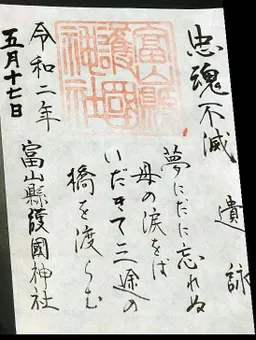 忠魂不滅
遺詠
夢にだに忘れぬ
母の涙をば
いだきて三途の
橋を渡らむ
富山縣
護國
神社
富山縣護國神社
令和二年
五月十七日